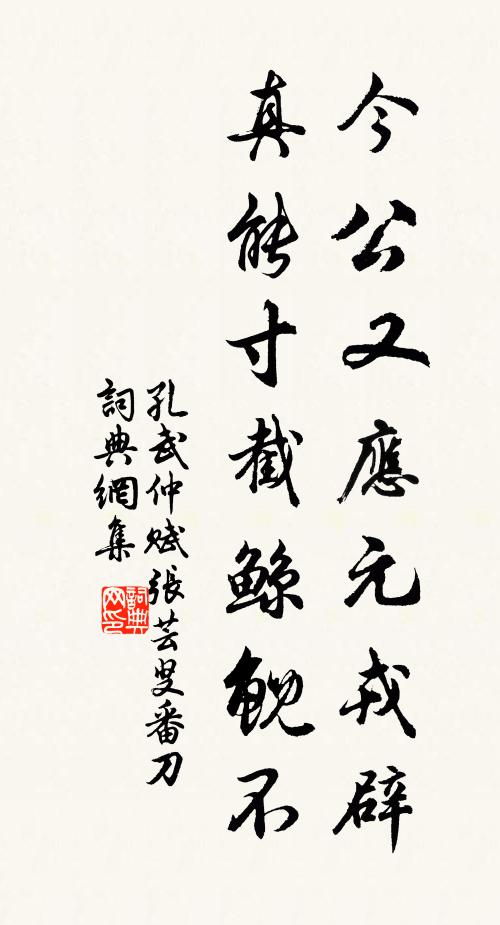 今公又應元戎辟
真能寸截鯨鯢不
孔武仲賦張芸叟番刀
詞典網集
詞典网印